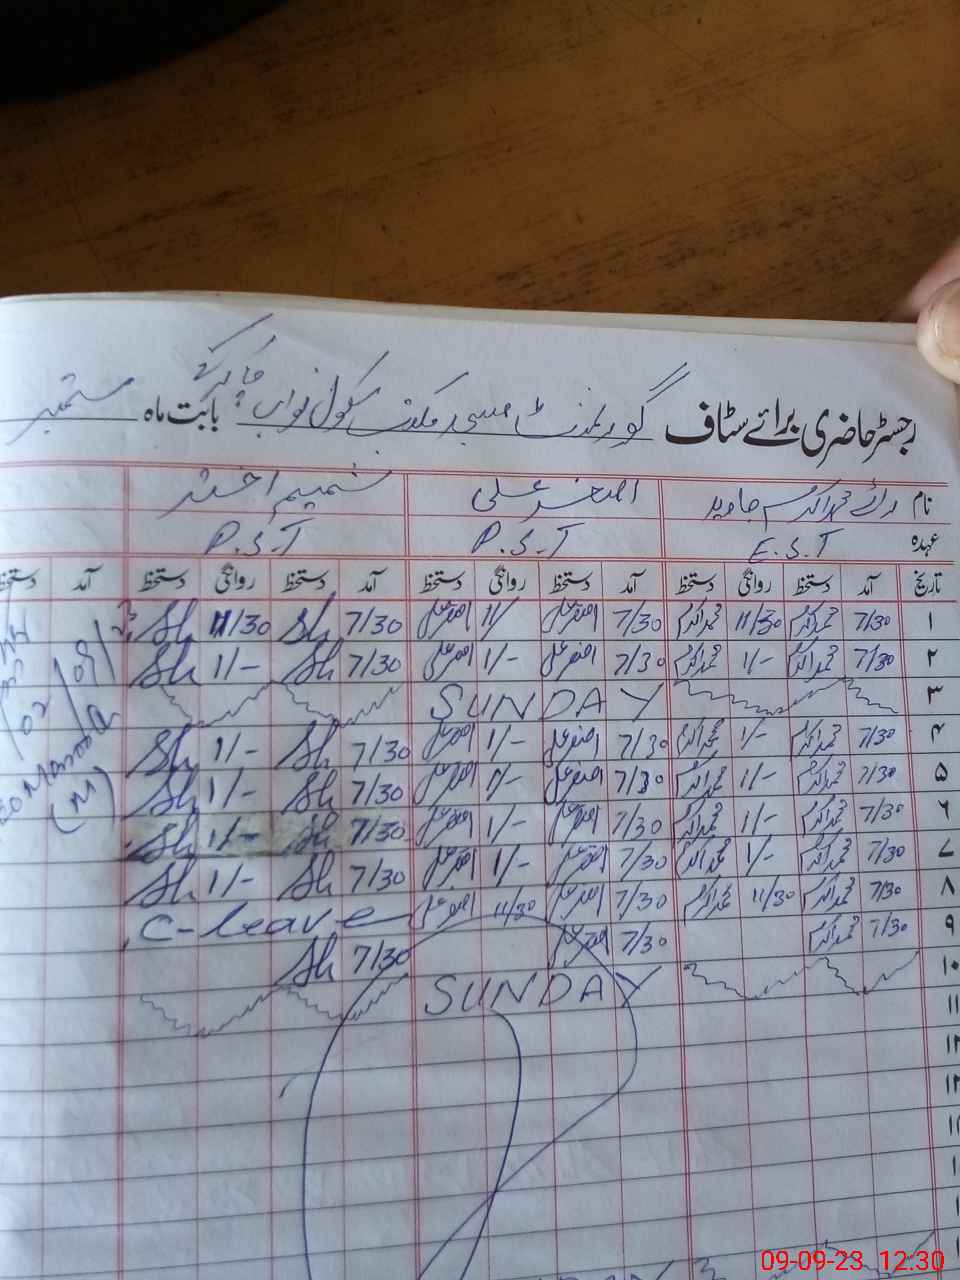 رجسٹر حاضری برائے سٹاف گورنمنٹ مسجد مکتب سکول نواب بابت ماہ ستمبر
نام رائے محمد اکرم جاوید اصغر علی شمیم اختر
عہدہ E.S.T P.S.T P.S.T
تاریخ آمد دستخط روانگی دستخط آمد دستخط روانگی دستخط آمد دستخط روانگی دستخط آمد دستخط
۱ 7/30 محمد اکرم 11/30 محمد اکرم 7/30 اصغر علی 11/ اصغر علی 7/30 Sh 11/30 Sh
۲ 7/30 محمد اکرم 1/- محمد اکرم 7/30 اصغر علی 1/- اصغر علی 7/30 Sh 1/- Sh
۳ SUNDAY
۴ 7/30 محمد اکرم 1/- محمد اکرم 7/30 اصغر علی 1/- اصغر علی 7/30 Sh 1/- Sh
۵ 7/30 محمد اکرم 1/- محمد اکرم 7/30 اصغر علی 1/- اصغر علی 7/30 Sh 1/- Sh
۶ 7/30 محمد اکرم 1/- محمد اکرم 7/30 اصغر علی 1/- اصغر علی 7/30 Sh 1/- Sh
۷ 7/30 محمد اکرم 1/- محمد اکرم 7/30 اصغر علی 1/- اصغر علی 7/30 Sh 1/- Sh
۸ 7/30 محمد اکرم 11/30 محمد اکرم 7/30 اصغر علی 11/30 اصغر علی C-leave
۹ 7/30 محمد اکرم 7/30 اصغر علی 7/30 Sh
۱۰ SUNDAY
۱۱
02/09/23
(M)
09-09-23 12:30